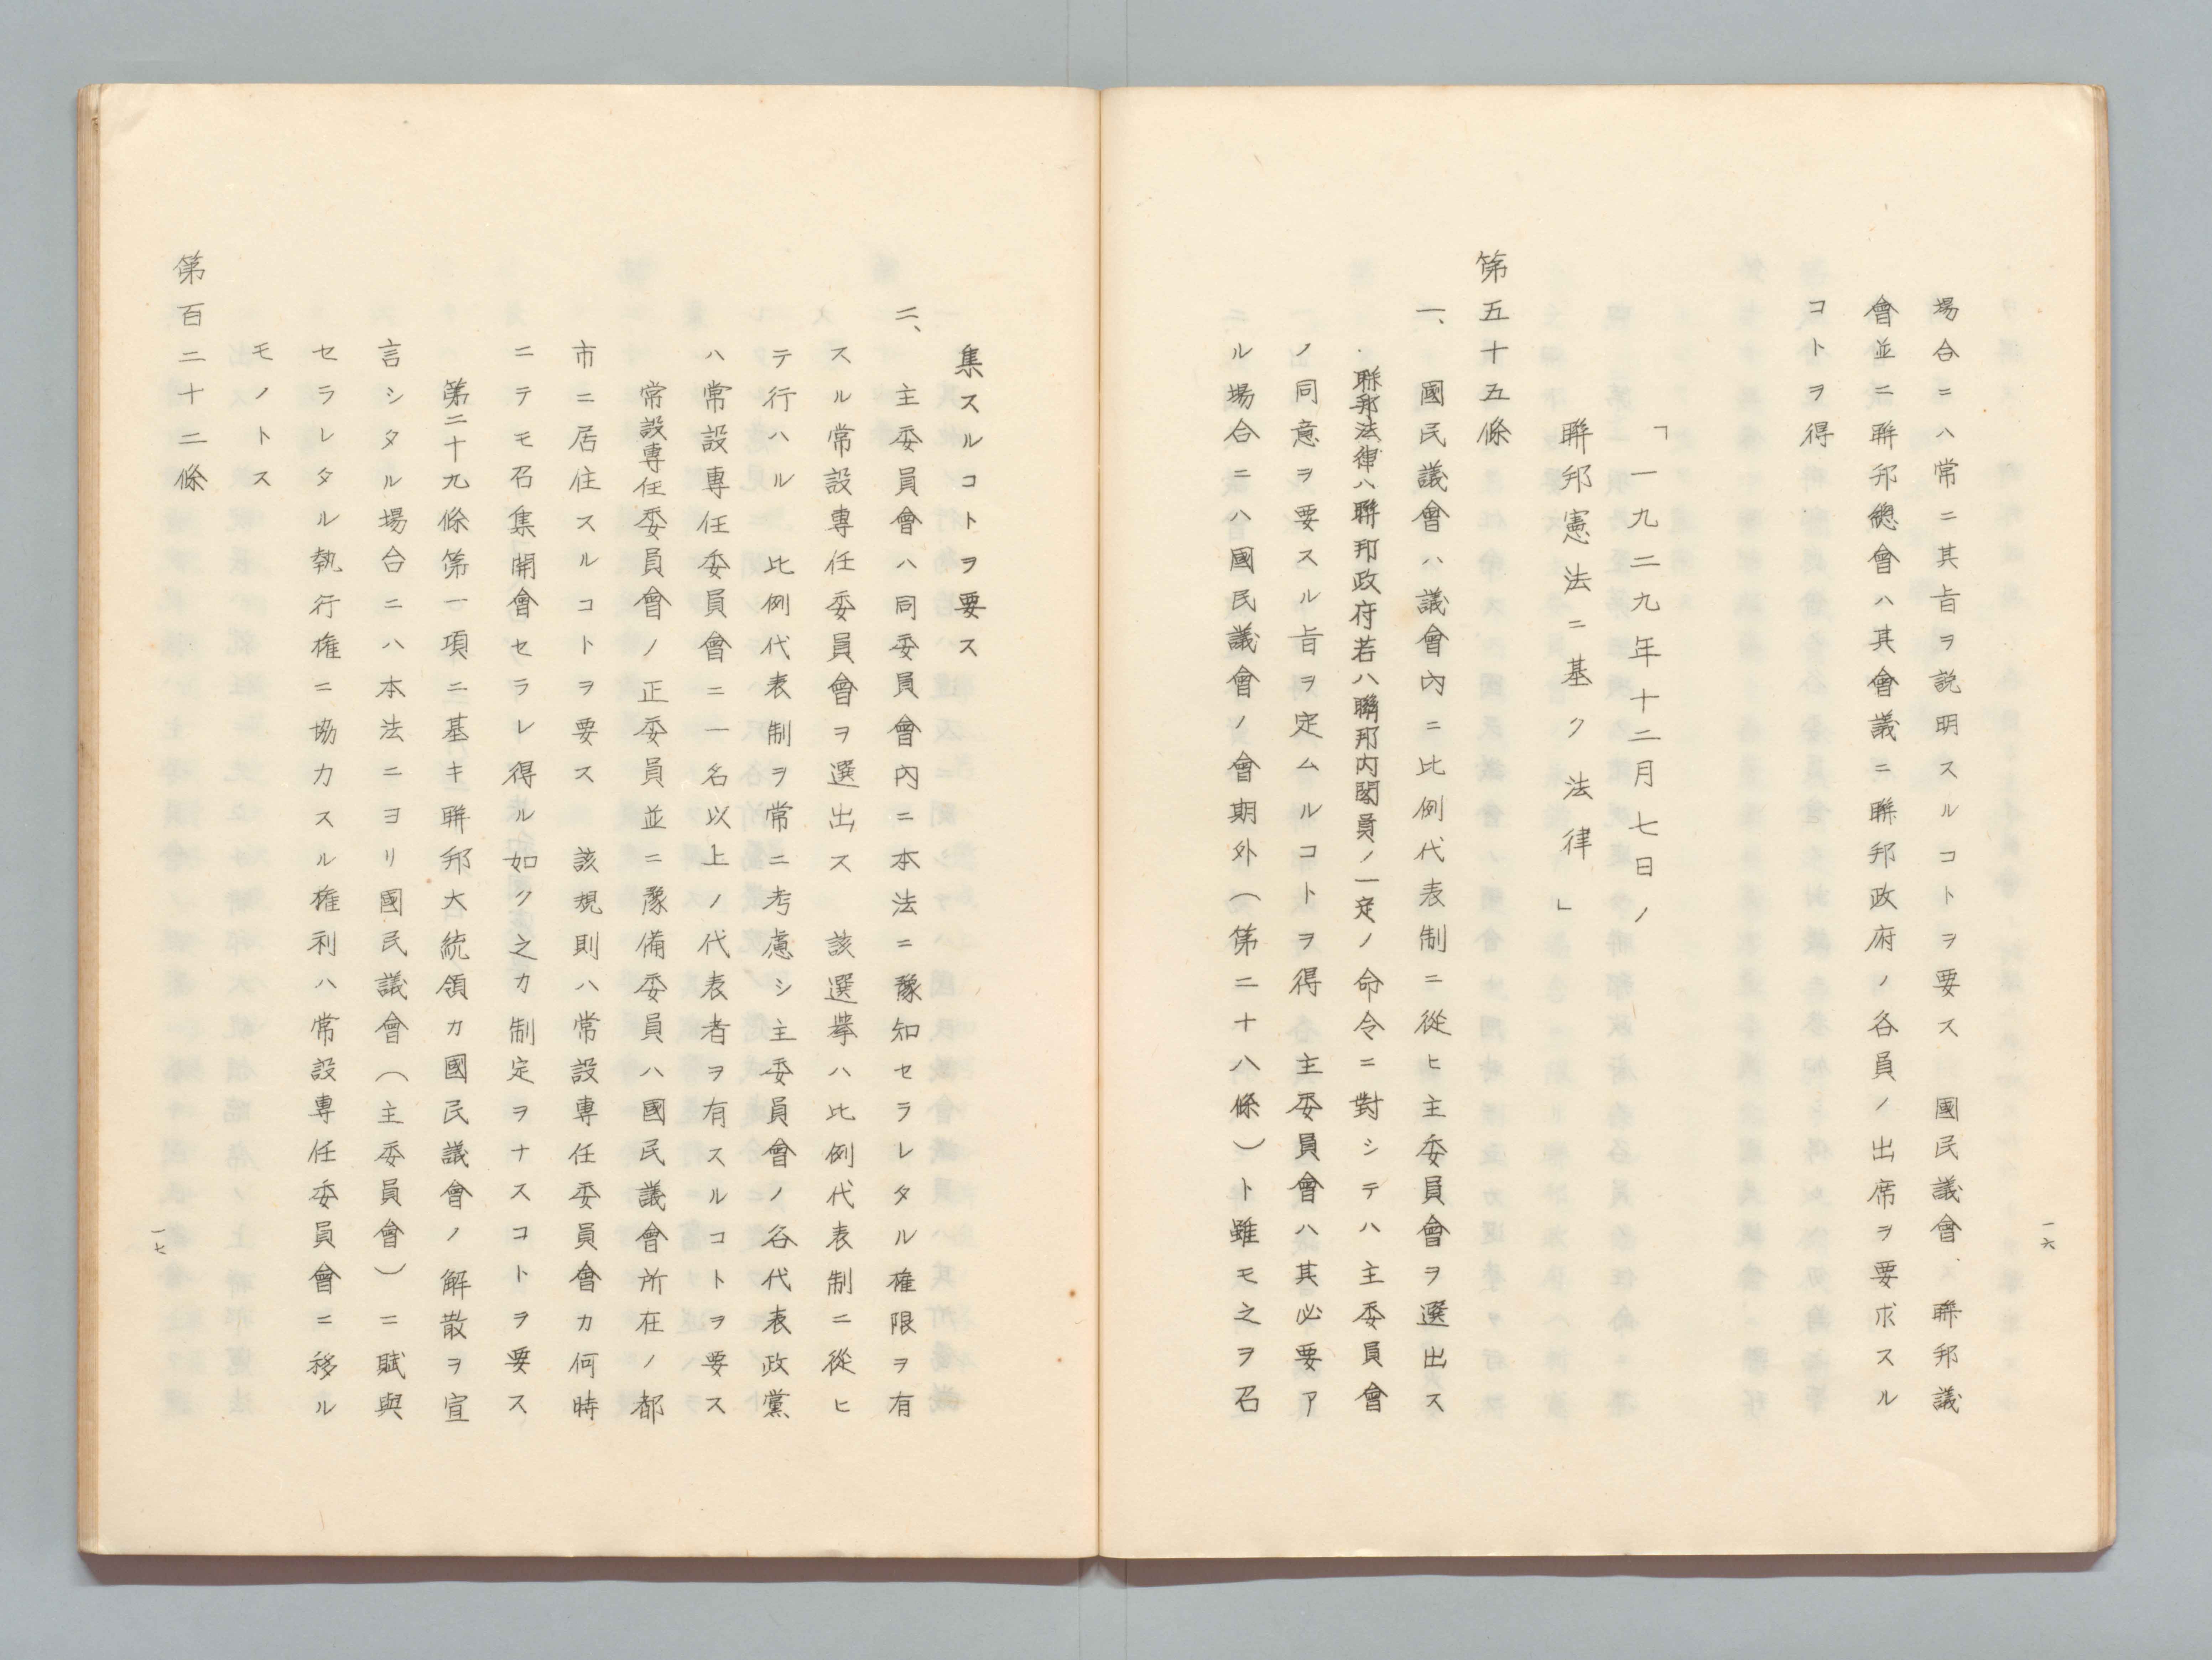 一六
場合ニハ常ニ其旨ヲ説明スルコトヲ要ス　國民議會、聯邦議
會並ニ聯邦總會ハ其會議ニ聯邦政府ノ各員ノ出席ヲ要求スル
コトヲ得
「一九二九年十二月七日ノ
聯邦憲法ニ基ク法律」
第五十五條
一、國民議會ハ議會內ニ比例代表制ニ從ヒ主委員會ヲ選出ス
聯邦法律ハ聯邦政府若ハ聯邦内閣員ノ一定ノ命令ニ對シテハ主委員會
ノ同意ヲ要スル旨ヲ定ムルコトヲ得　主委員會ハ其必要ア
ル場合ニハ國民議會ノ會期外（第二十八條）ト雖モ之ヲ召
集スルコトヲ要ス
二、主委員會ハ同委員會內ニ本法ニ豫知セラレタル権限ヲ有
スル常設專任委員會ヲ選出ス　該選挙ハ比例代表制ニ從ヒ
テ行ハル　比例代表制ヲ常ニ考慮シ主委員會ノ各代表政黨
ハ常設專任委員會ニ一名以上ノ代表者ヲ有スルコトヲ要ス
常設專任委員會ノ正委員並ニ豫備委員ハ國民議會所在ノ都
市ニ居住スルコトヲ要ス　該規則ハ常設專任委員會カ何時
ニテモ召集開會セラレ得ル如ク之カ制定ヲナスコトヲ要ス
第二十九條第一項ニ基キ聯邦大統領カ國民議會ノ解散ヲ宣
言シタル場合ニハ本法ニヨリ國民議會（主委員會）ニ賦與
セラレタル執行権ニ協力スル権利ハ常設專任委員會ニ移ル
モノトス
第百二十二條
一七